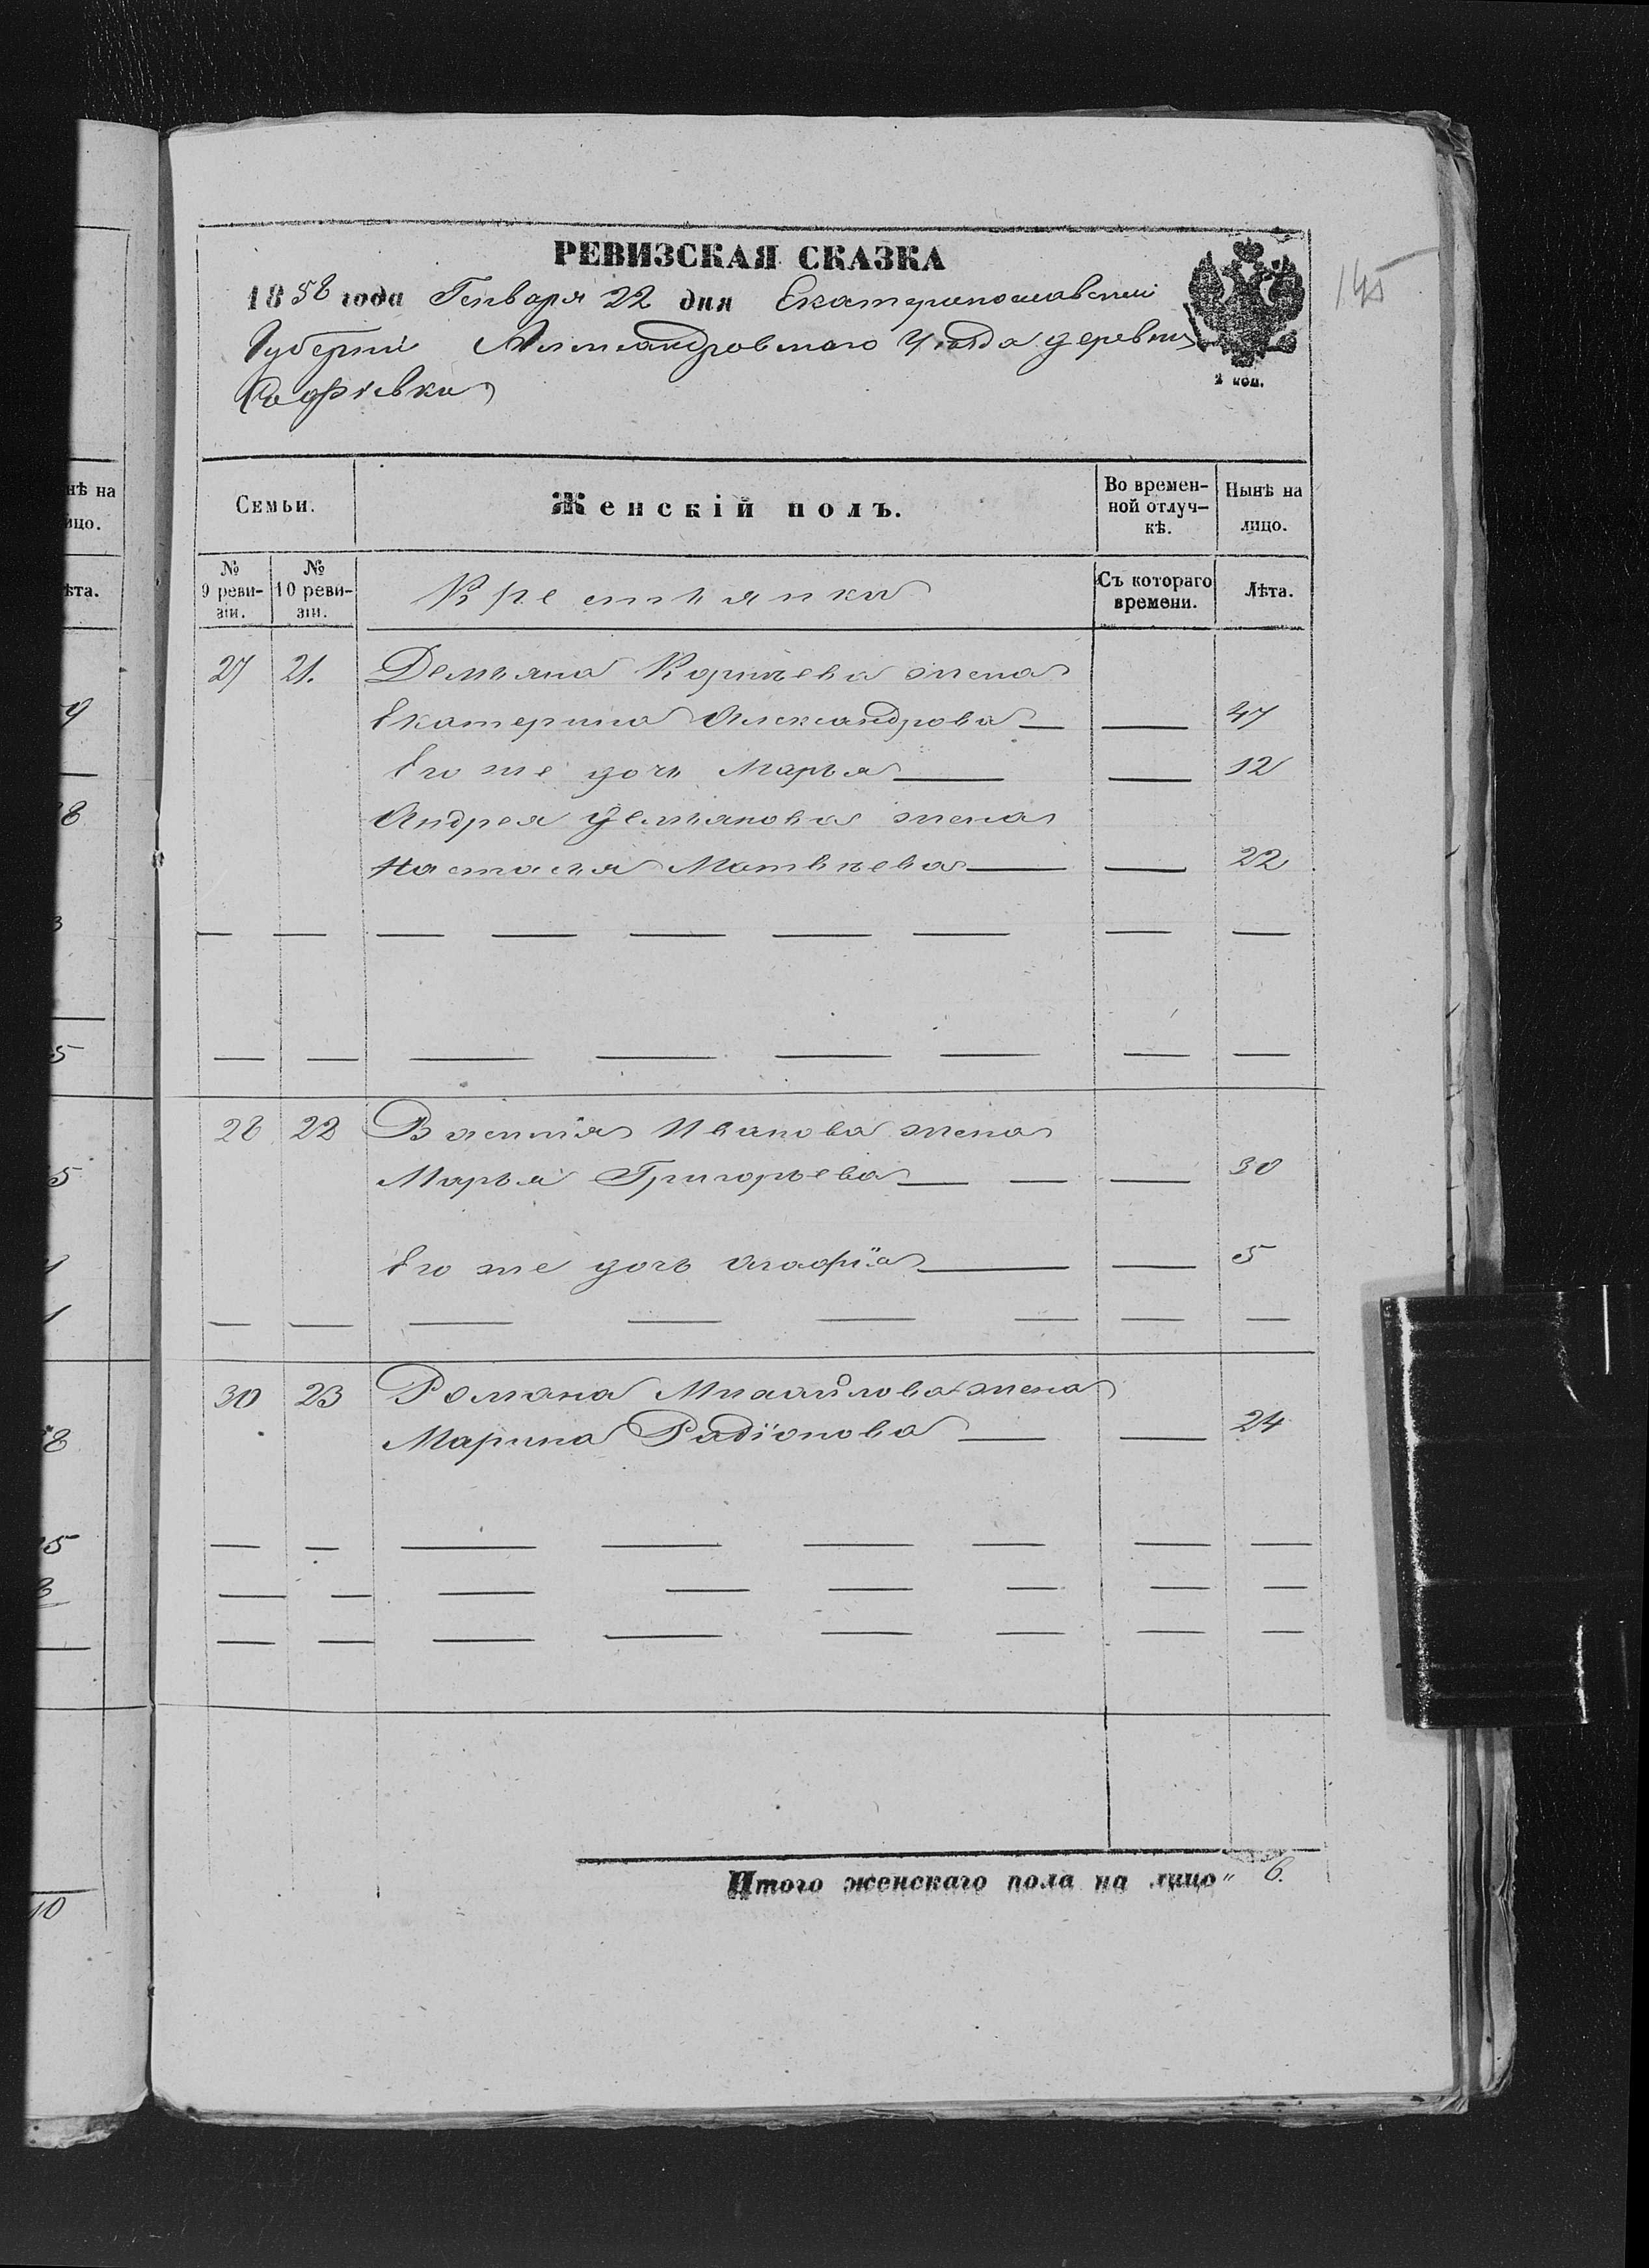 нѣ на
ицо.
ѣта.
9
8
3
5
5
8
5
10
РЕВИЗСКАЯ СКАЗКА
1858 года Генваря 22 дня Екатеринославской
Губерніи Александровскаго Уѣзда деревни
Софіевки
2 коп.
145
Семьи.
Женскій полъ.
Во времен-
ной отлуч-
кѣ.
Нынѣ на
лицо.
№
9 реви-
зіи.
№
10 реви-
зіи.
Крестьянки
Съ котораго
времени.
Лѣта.
27 21. Демьяна Корнѣева жена
Екатерина Александрова 47
Его же дочь Марья 12
Андрея Демьянова жена
Настасья Матвѣева 22
28 22 Василія Иванова жена
Марья Григорьева 30
Его же дочь Агафія 5
30 23 Романа Михайлова жена
Марина Радіонова 24
Итого женскаго пола на лицо " 6.